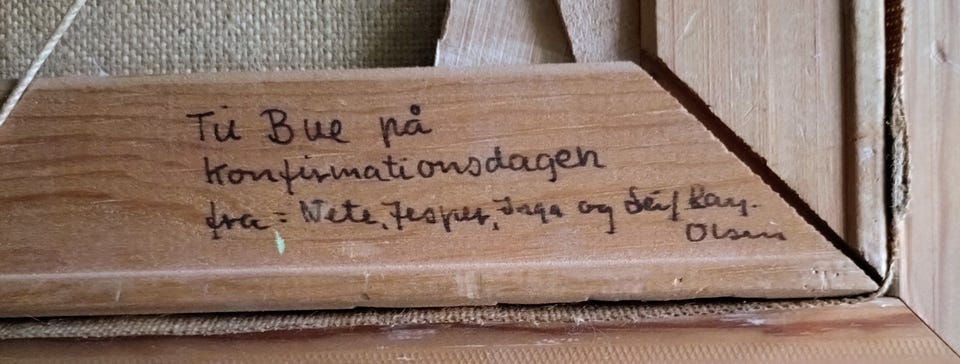 Til Bue på
konfirmationsdagen
fra = Nete, Jesper, Inga og Leif Ray-
Olsen